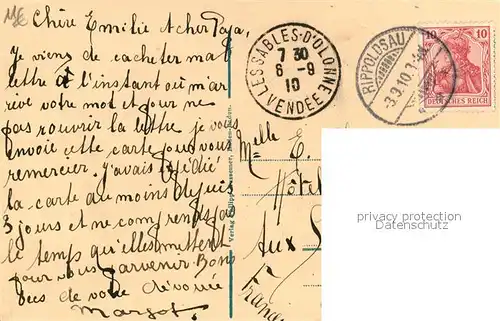 Chère Emilie A cher Papa,
Je viens de cacheter ma
lettre à l'instant ou m'ar
rive votre mot et pour ne
pas rouvrir la lettre je vous
envoie cette carte pour vous
remercier. J'avais expédié
la carte du moins depuis
3 jours et ne comprends pas
le temps qu'elles mettent
pour vous parvenir. Bons
de votre dévouée
Margot
Verlag Philipp
LES SABLES-D'OLONNE
7 30
6 - 9
10
VENDÉE
RIPPOLDSAU
3.9.10.
10 10
DEUTSCHES REICH
Melle E
Hôtel
aux S
France
privacy protection
Datenschutz